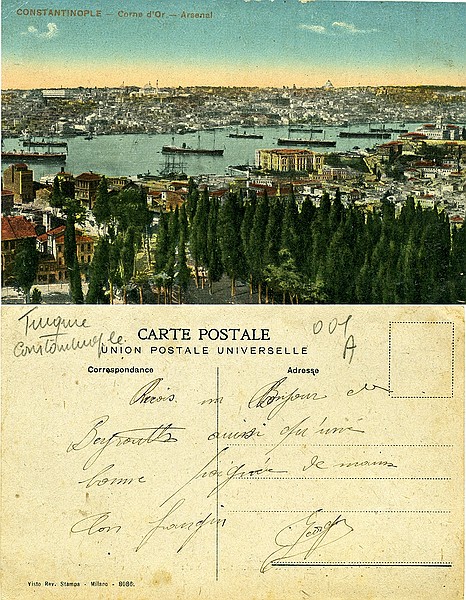 CONSTANTINOPLE — Corne d'Or. — Arsenal
Turquie
Constantinople.
001
A
CARTE POSTALE
UNION POSTALE UNIVERSELLE
Correspondance
Adresse
Reçois un Bonjour de
Beyrouth aussi qu'une
bonne poignée de mains
Ton frangin
Visto Rev. Stampa - Milano - 8086.